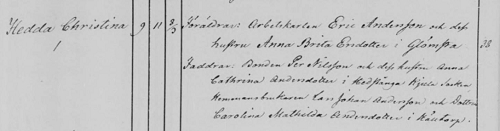 Hedda Christina 9 11 9/3 Föräldrar: Arbetskarlen Eric Anderson och dess 38.
hustru Anna Brita Ersdotter i Glömsta
Faddrar: Bonden Per Nilsson och dess hustru Anna
Cathrina Andersdotter i
Hemmansbrukaren Lars Johan Anderson och
Carolina Mathilda Andersdotter i